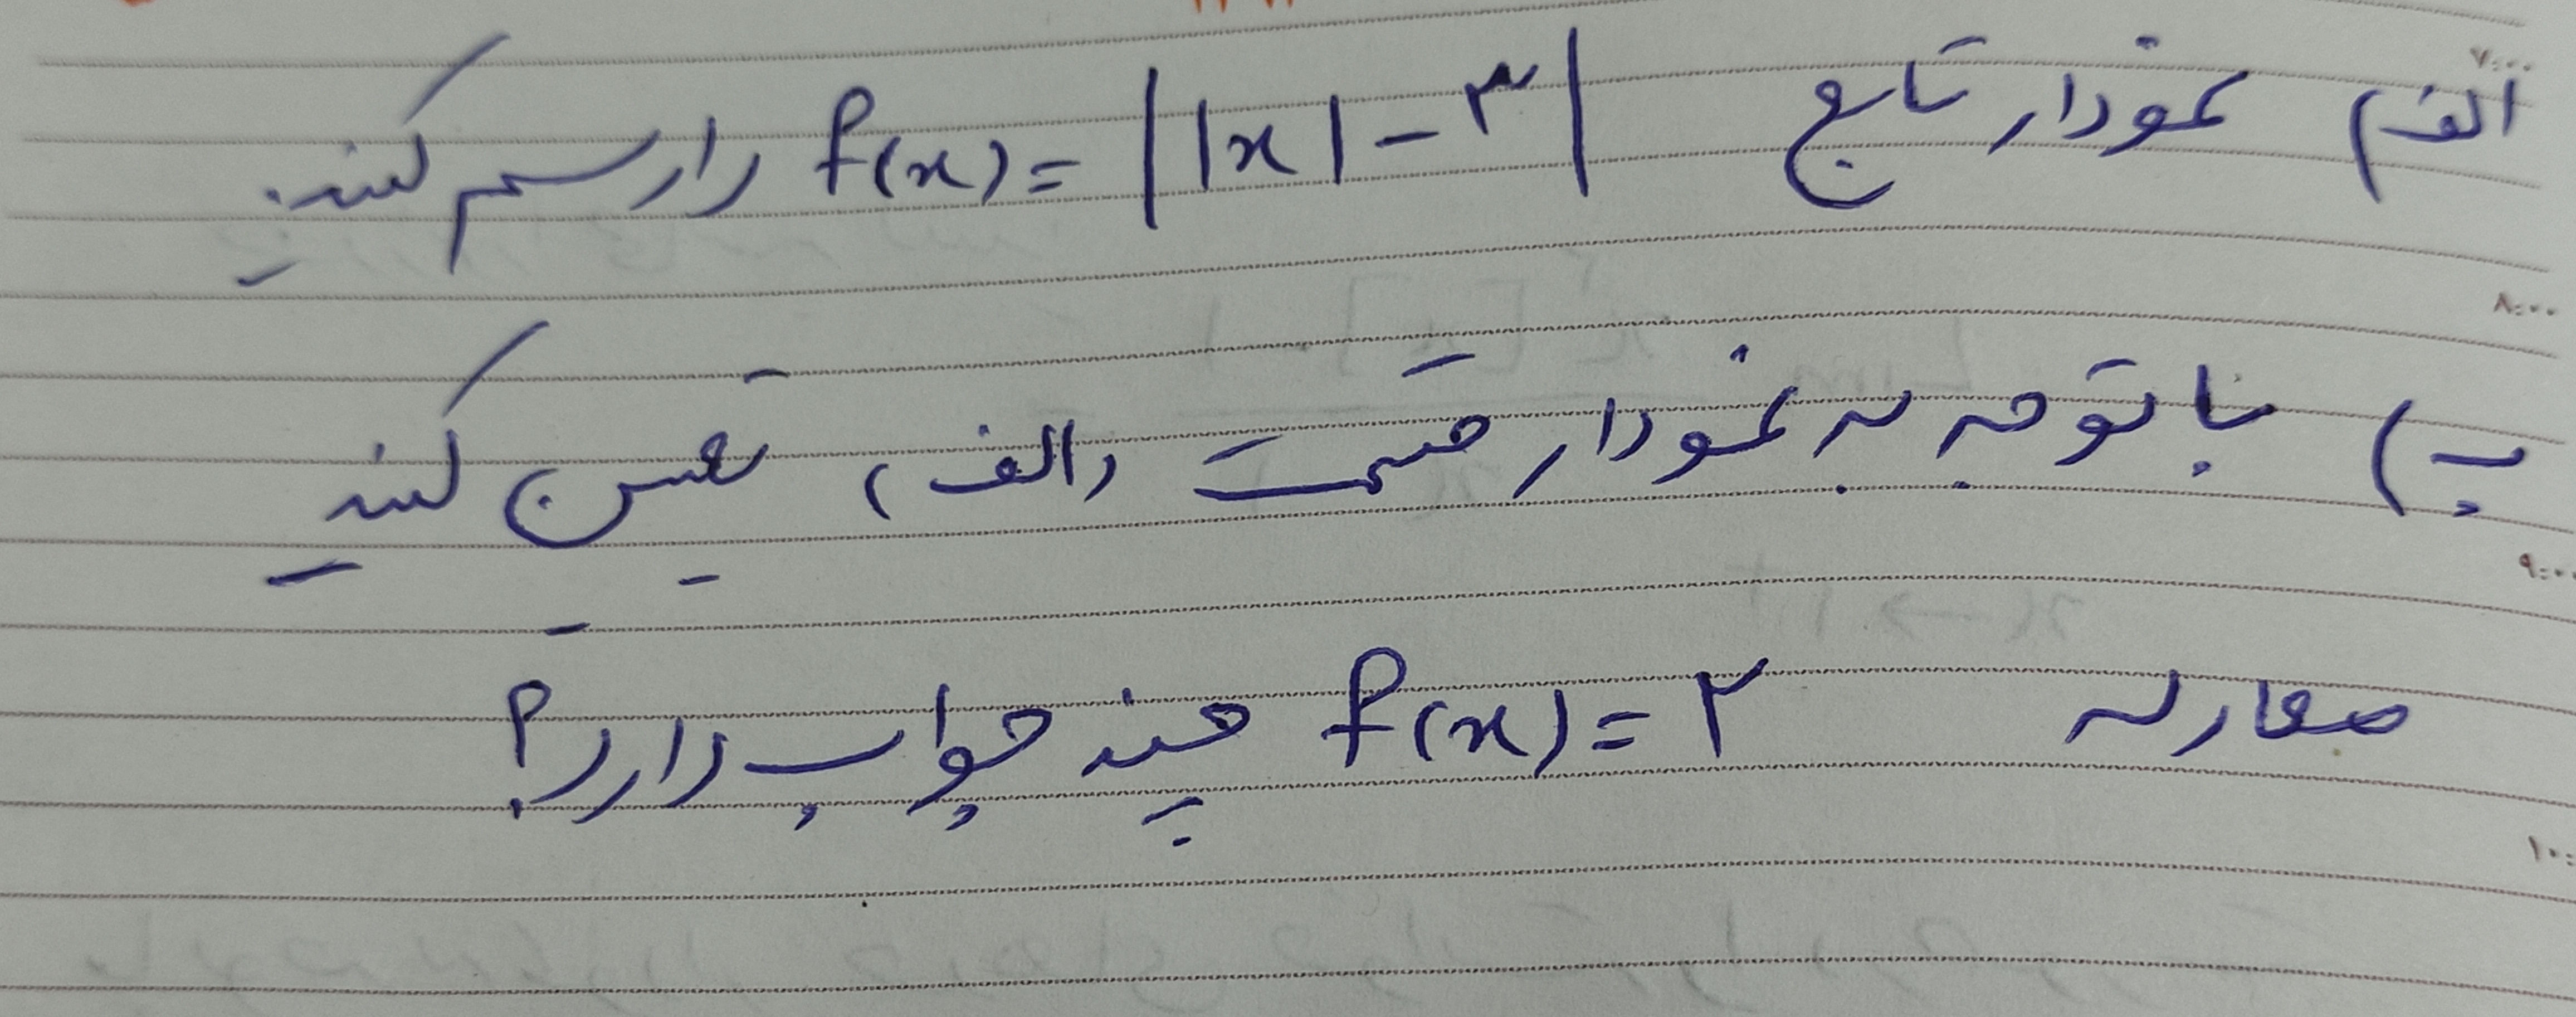 ۷:۰۰
الف) نمودار تابع f(x) = ||x| - ۳| را رسم کنید.
۸:۰۰
ب) با توجه به نمودار قسمت (الف) تعیین کنید
۹:۰۰
معادله f(x) = ۲ چند جواب دارد؟
۱۰: